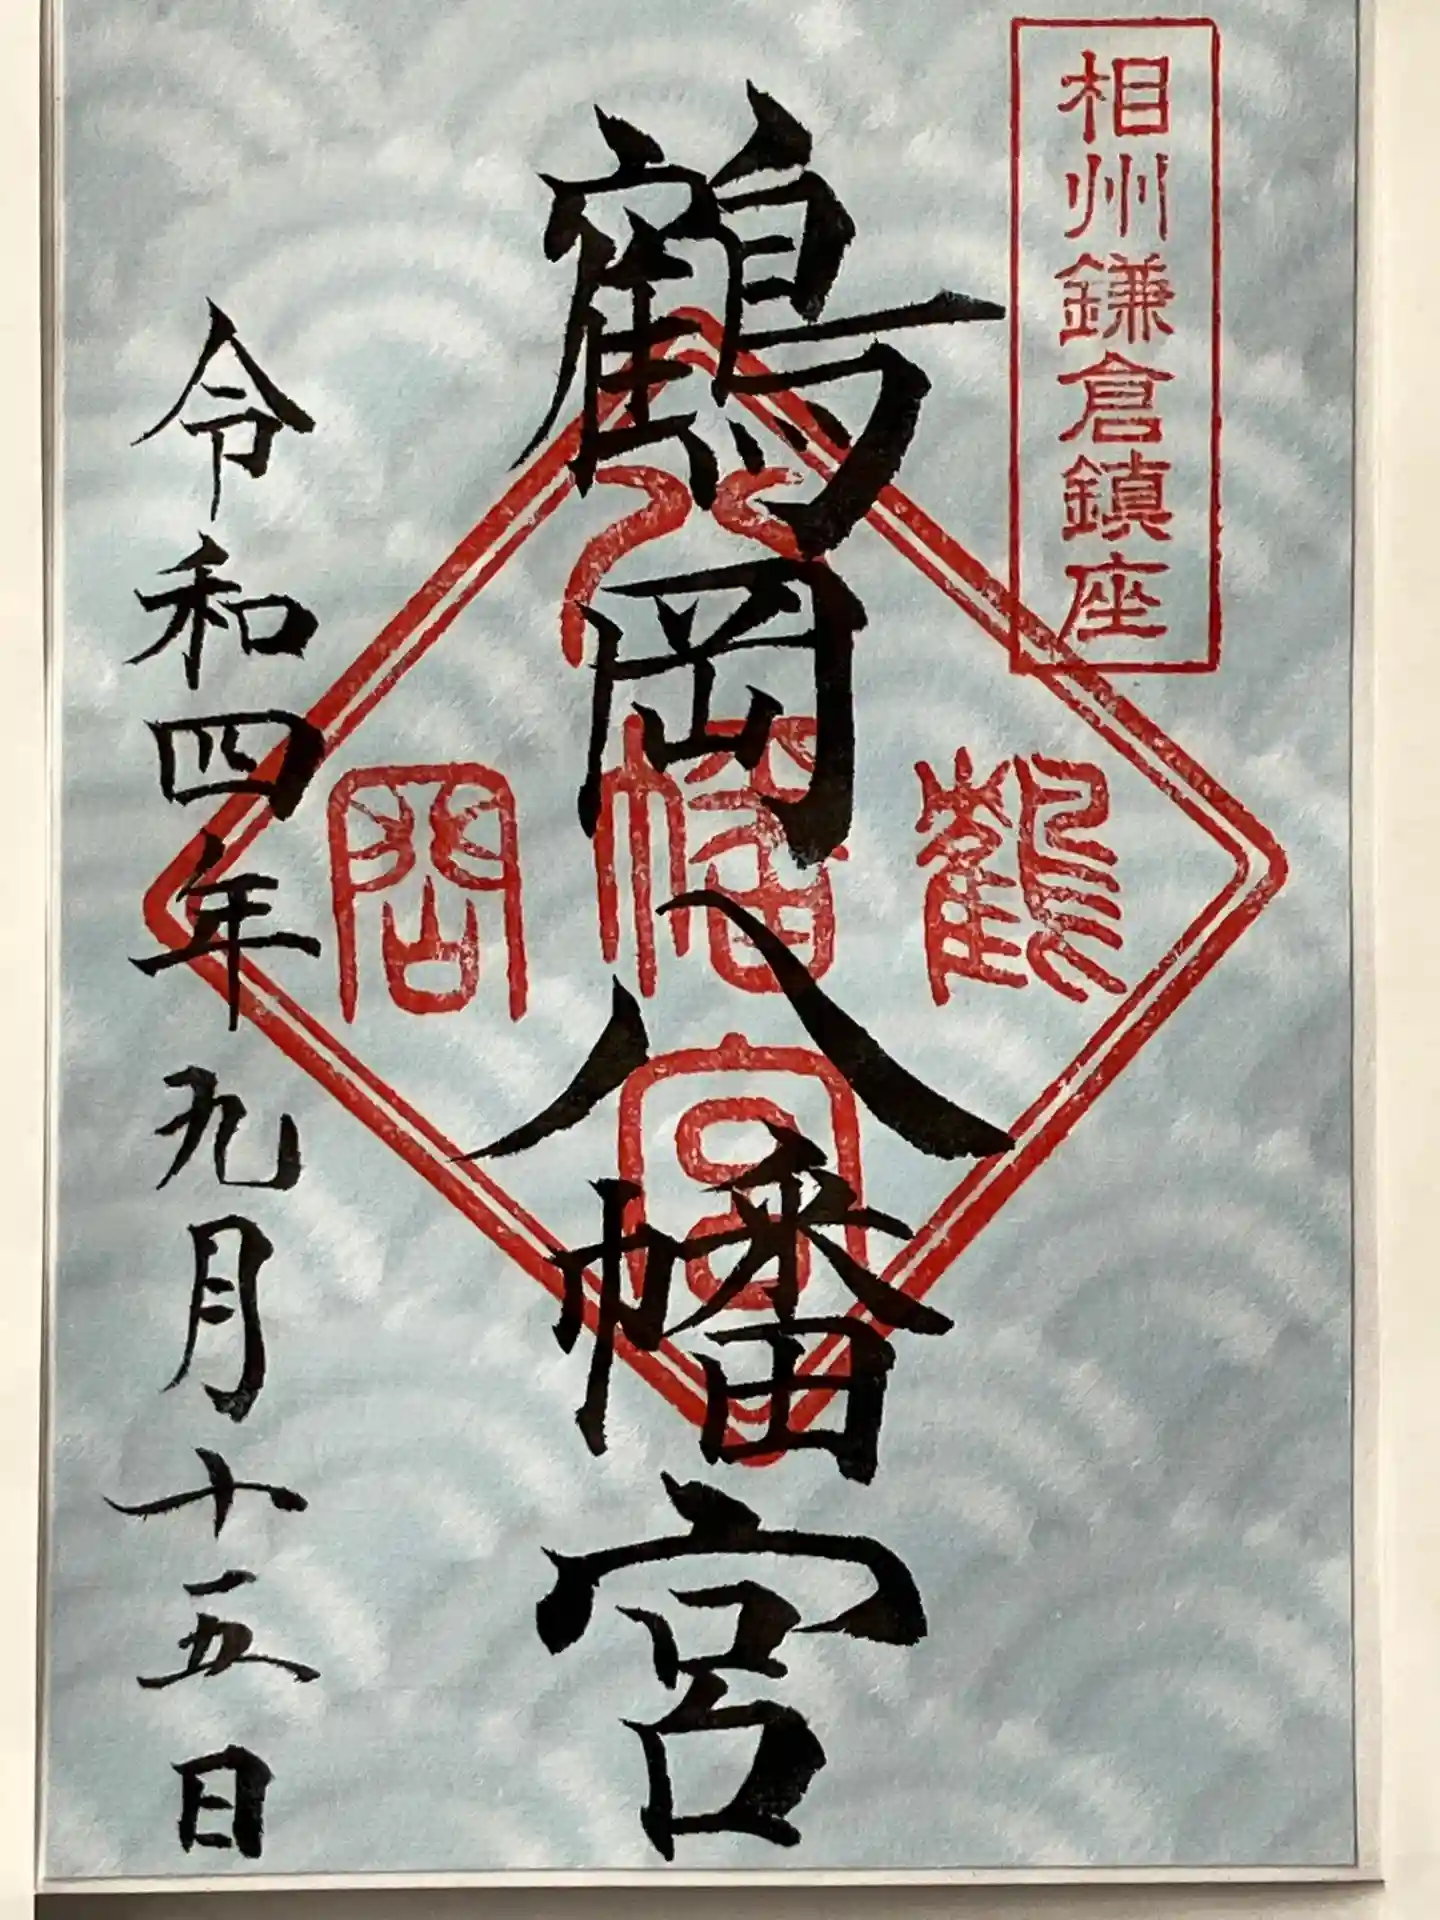 相州鎌倉鎮座
鶴岡八幡宮
鶴
八幡宮
岡
令和四年九月十五日